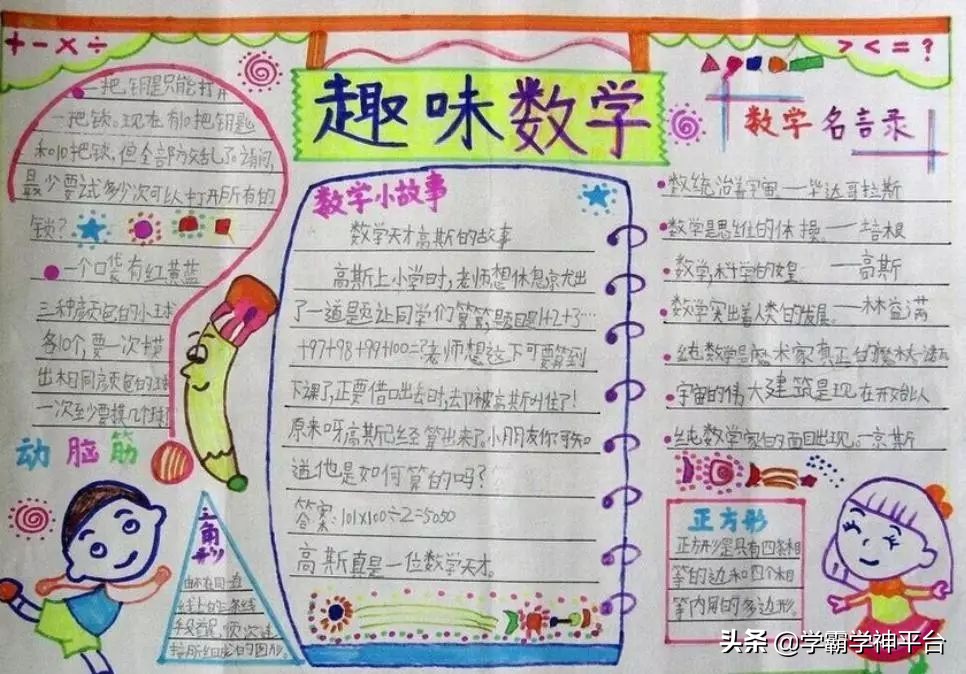 + - × ÷
> < = ?
趣味数学
一把钥匙只能打开
一把锁。现在有10把钥匙
和10把锁,但全部放乱了。请问,
最少要试多少次可以打开所有的
锁?
一个口袋有红黄蓝
三种颜色的小球
各10个,要一次摸
出相同颜色的球
一次至少要摸几个球
动脑筋
三角形
线上的三条线
数学小故事
数学天才高斯的故事
高斯上小学时,老师想休息
了一道题让同学们算算,题目是1+2+3…
+97+98+99+100=?老师想这下可要算到
下课了,正要借口出去时,却被高斯叫住了!
原来呀,高斯已经算出来了,小朋友你可知
道他是如何算的吗?
答案:101×100÷2=5050
高斯真是一位数学天才。
数学名言录
数统治着宇宙——毕达哥拉斯
数学是思维的体操。——培根
数学,科学的女皇。——高斯
数学突出着人类的发展。——林益满
纯数学是魔术家真正的魔杖
宇宙的伟大建筑是现在开始以
纯数学家的面目出现。—京斯
正方形
正方形是只有四条相
等的边和四个相
等内角的多边形。
头条 @学霸学神平台